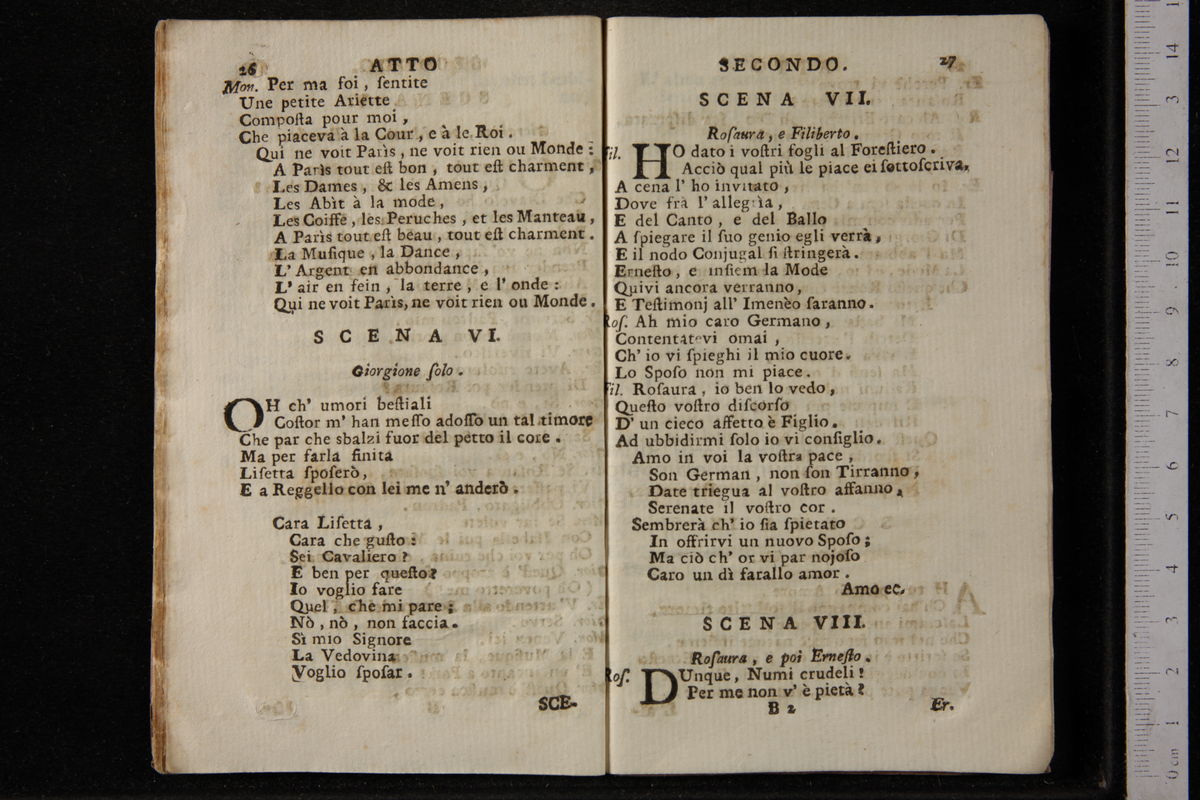 26 ATTO
Mon. Per ma foi, ſentite
Une petite Ariette
Compoſta pour moi,
Che piaceva à la Cour, e à le Roi.
Qui ne voit Parìs, ne voit rien ou Monde:
A Parìs tout eſt bon, tout eſt charment,
Les Dames, & les Amens,
Les Abìt à la mode,
Les Coiffe, les Peruches, et les Manteau,
A Parìs tout eſt beau, tout eſt charment.
La Muſique, la Dance,
L' Argent en abbondance,
L' air en ſein, la terre, e l' onde:
Qui ne voit Parìs, ne voit rien ou Monde.
SCENA VI.
Giorgione ſolo.
OH ch' umori beſtiali
Coſtor m' han meſſo adoſſo un tal timore
Che par che sbalzi fuor del petto il core.
Ma per farla finita
Liſetta ſpoſerò,
E a Reggello con lei me n' anderò.
Cara Liſetta,
Cara che guſto:
Sei Cavaliero?
E ben per queſto?
Io voglio fare
Quel, che mi pare;
Nò, nò, non faccia.
Sì mio Signore
La Vedovina
Voglio ſpoſar.
SCE-
SECONDO. 27
SCENA VII.
Roſaura, e Filiberto.
Fil. HO dato i voſtri fogli al Foreſtiero.
Acciò qual più le piace ei ſottoſcriva,
A cena l' ho invitato,
Dove frà l' allegrìa,
E del Canto, e del Ballo
A ſpiegare il ſuo genio egli verrà,
E il nodo Conjugal ſi ſtringerà.
Erneſto, e inſiem la Mode
Quivi ancora verranno,
E Teſtimonj all' Imenèo ſaranno.
Roſ. Ah mio caro Germano,
Contentatevi omai,
Ch' io vi ſpieghi il mio cuore.
Lo Spoſo non mi piace.
Fil. Roſaura, io ben lo vedo,
Queſto voſtro diſcorſo
D' un cieco affetto è Figlio.
Ad ubbidirmi ſolo io vi conſiglio.
Amo in voi la voſtra pace,
Son German, non ſon Tirranno,
Date triegua al voſtro affanno,
Serenate il voſtro cor.
Sembrerà ch' io ſia ſpietato
In offrirvi un nuovo Spoſo;
Ma ciò ch' or vi par nojoſo
Caro un dì farallo amor.
Amo ec.
SCENA VIII.
Roſaura, e poi Erneſto.
Roſ. DUnque, Numi crudeli!
Per me non v' è pietà?
B 2 Er.
0 cm 1 2 3 4 5 6 7 8 9 10 11 12 13 14